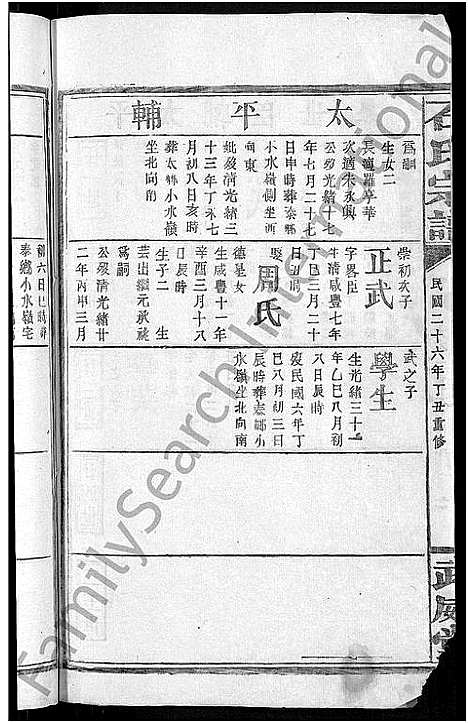 石氏宗譜
民國二十六年丁丑重修
武威堂
太平輔
為嗣
生女二
長適羅亭華
次適朱永興
公歿光緒十七
年七月二十七
日申時葬泰鄉
小水嶺側坐西
向東
妣歿清光緒三
十三年丁未七
月初八日亥時
葬太鄉小水嶺
坐北向南
崇初次子
正武
字畧臣
生清咸豐七年
丁巳三月二十
日丑時
娶周氏
德星女
生咸豐十一年
辛酉三月十八
日辰時
生子二 一生
芸出繼元承祧
為嗣
公歿清光緒廿
二年丙申三月
武之子
學生
生光緒三十一
年乙巳八月初
八日辰時
歿民國六年丁
巳八月初三日
辰時葬泰鄉小
水嶺坐北向南
初六日巳時葬
泰鄉小水嶺宅
FamilySearch International